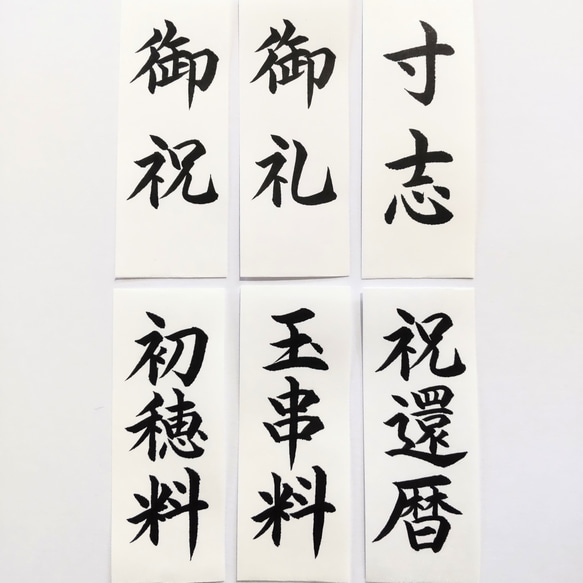 御祝
御礼
寸志
初穂料
玉串料
祝還暦